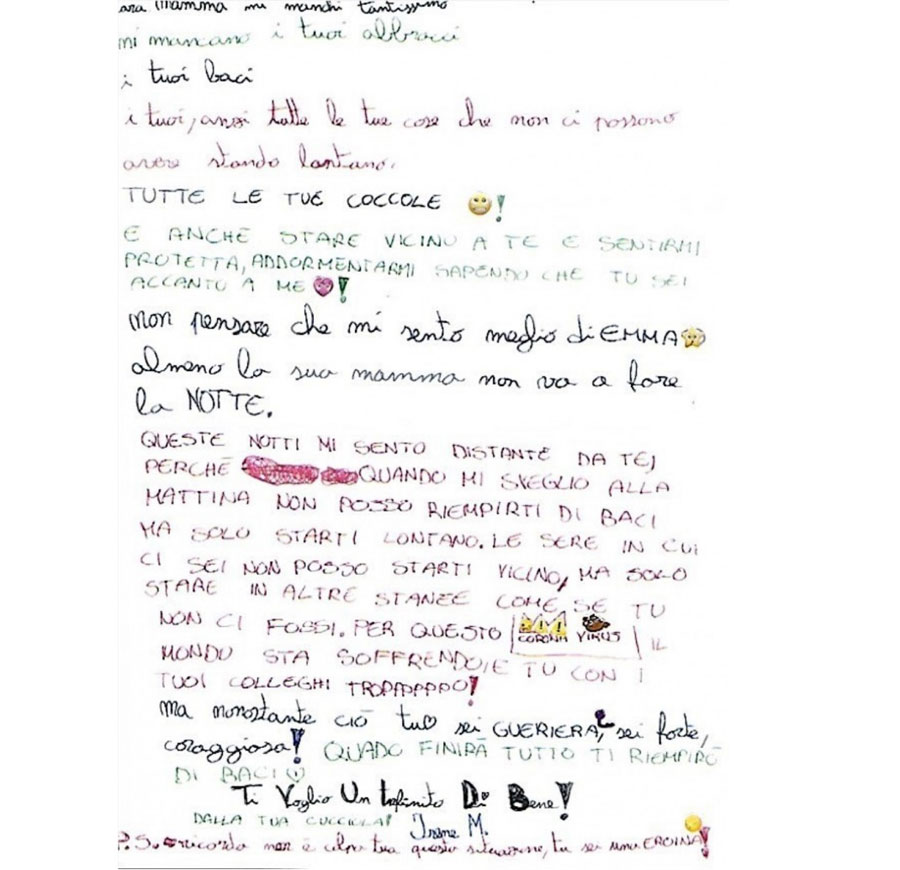 ara Mamma mi manchi tantissimo
mi mancano i tuoi abbracci
i tuoi baci
i tuoi, anzi tutte le tue cose che non ci possono
stando lontano.
TUTTE LE TUE COCCOLE 😟!
E ANCHE STARE VICINO A TE E SENTIRMI
PROTETTA, ADDORMENTARMI SAPENDO CHE TU SEI
ACCANTO A ME 💜!
non pensare che mi sento meglio di EMMA
almeno la sua mamma non va a fare
la NOTTE.
QUESTE NOTTI MI SENTO DISTANTE DA TE,
PERCHÈ QUANDO MI SVEGLIO ALLA
MATTINA NON POSSO RIEMPIRTI DI BACI
MA SOLO STARTI LONTANO. LE SERE IN CUI
CI SEI NON POSSO STARTI VICINO, MA SOLO
STARE IN ALTRE STANZE COME SE TU
NON CI FOSSI. PER QUESTO CORONA VIRUS IL
MONDO STA SOFFRENDO, E TU CON I
TUOI COLLEGHI TROPPPPPPO!
Ma nonostante ciò tu sei GUERIERA, sei forte,
coraggiosa! QUADO FINIRÀ TUTTO TI RIEMPIRÒ
DI BACI
Ti Voglio Un Infinito Di Bene!
DALLA TUA CUCCIOLA! Irene M.
P.S. ricorda non è colpa tua questa situazione, tu sei una EROINA!